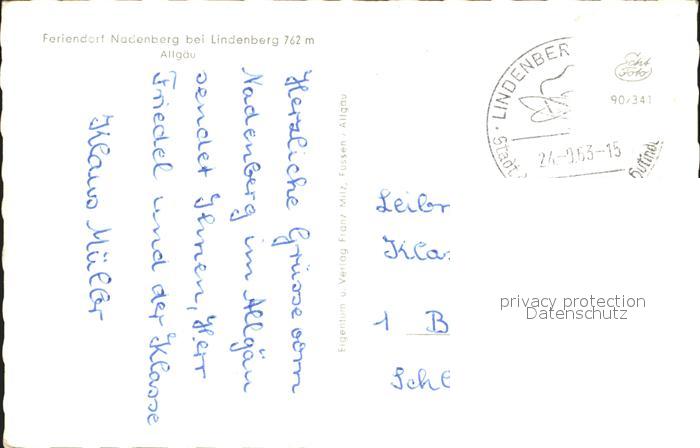 Feriendorf Nadenberg bei Lindenberg 762 m
Allgäu
Herzliche Grüsse vom
Nadenberg im Allgäu
sendet Ihnen, Herr
Friedel und der Klasse
Klaus Müller
Eigentum u. Verlag Franz Milz, Füssen-Allgäu
LINDENBER
Stadt
24-9.63-15
Echt
Foto
90/341
Leibn
Kla
1 B
Schl
privacy protection
Datenschutz